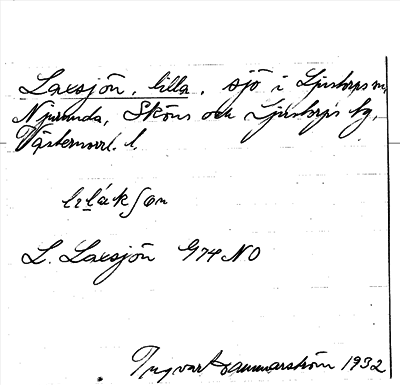 Laxsjön, lilla, sjö i Ljustorps sn,
Njurunda, Sköns och Ljustorps tg,
Västernorrl. l.
L. Laxsjön G74 NO
Ingvar Hammarström 1932